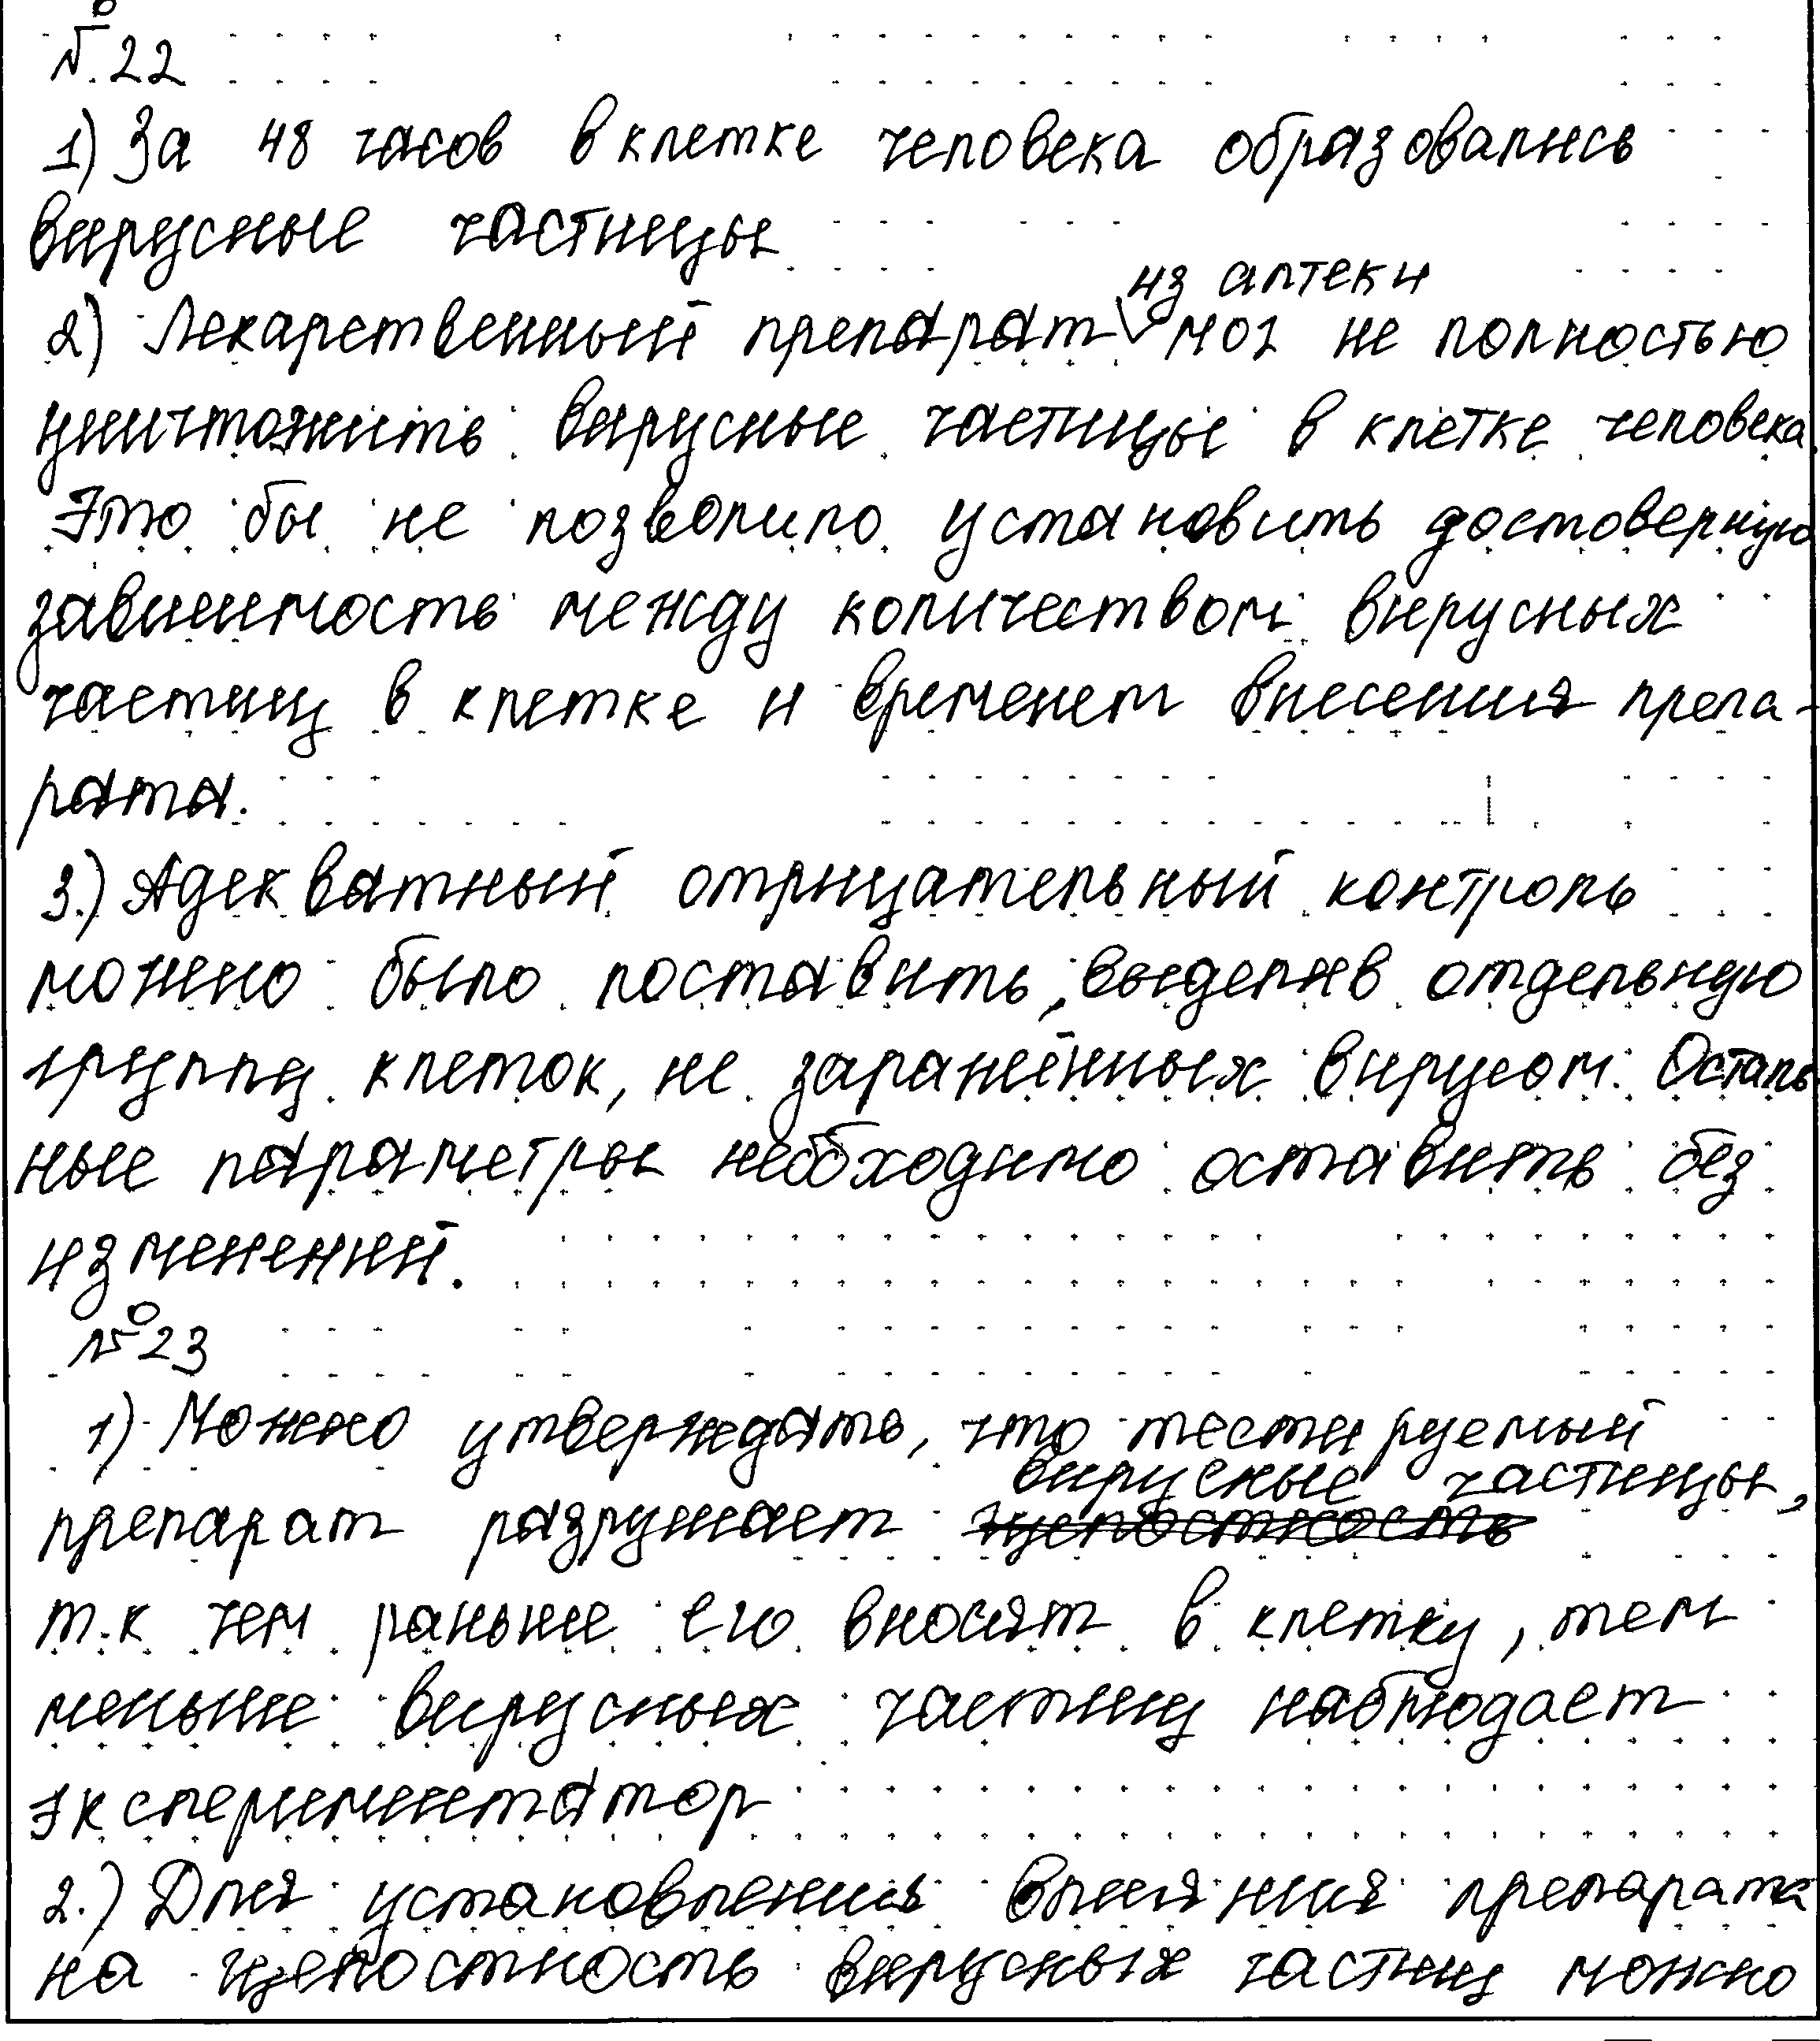 № 22
1) За 48 часов в клетке человека образовались
вирусные частицы
из аптеки
2) Лекарственный препарат мог не полностью
уничтожить вирусные частицы в клетке человека.
Это бы не позволило установить достоверную
зависимость между количеством вирусных
частиц в клетке и временем внесения препа-
рата.
3.) Адекватный отрицательный контроль
можно было поставить, выделив отдельную
группу клеток, не заражённых вирусом. Осталь
ные параметры необходимо оставить без
изменений.
№ 23
1) Можно утверждать, что тестируемый
вирусные частицы,
препарат разрушает целостность
т.к чем раньше его вносят в клетку, тем
меньше вирусных частиц наблюдает
экспериментатор
2.) Для установления влияния препарата
на целостность вирусных частиц можно